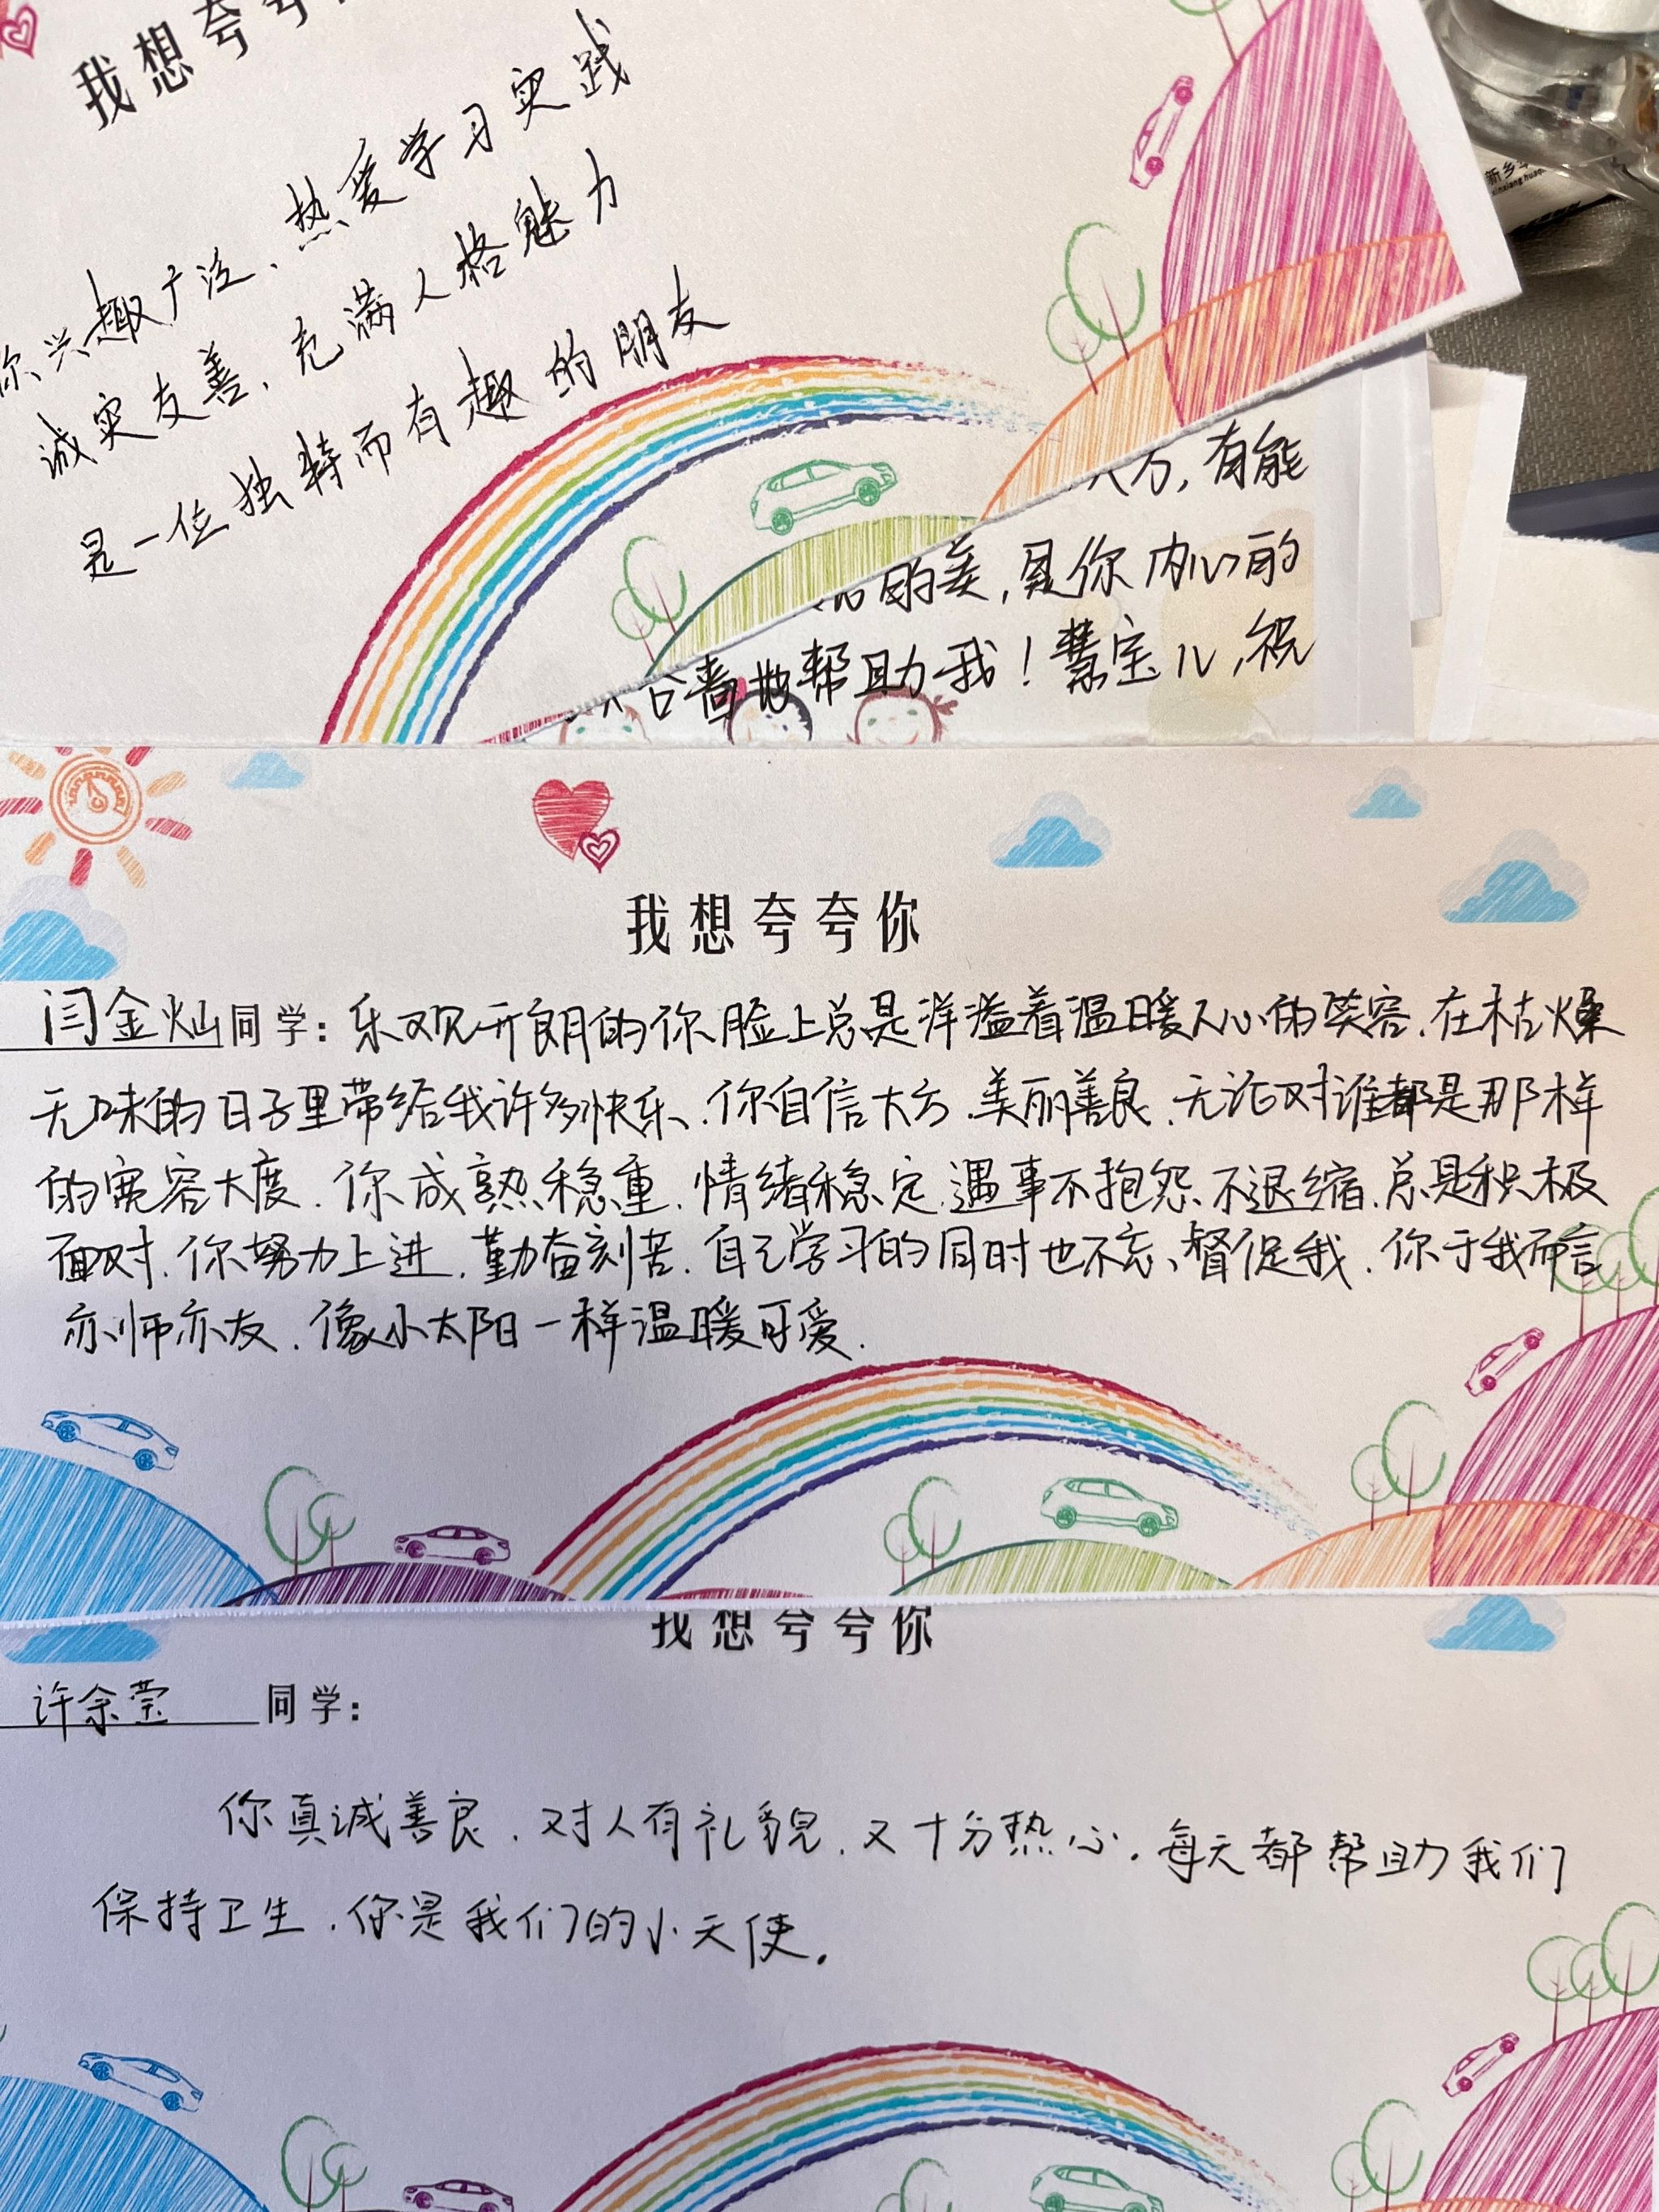 我想夸夸
你兴趣广泛、热爱学习实践
诚实友善，充满人格魅力
是一位独特而有趣的朋友
新乡
方，有能
的美，是你内心的
吝啬地帮助我！慧宝儿，祝
我想夸夸你
闫金灿同学：乐观开朗的你脸上总是洋溢着温暖人心的笑容，在枯燥
无味的日子里带给我许多快乐，你自信大方，美丽善良，无论对谁都是那样
的宽容大度，你成熟稳重，情绪稳定，遇事不抱怨、不退缩，总是积极
面对，你努力上进，勤奋刻苦，自己学习的同时也不忘督促我，你于我而言
亦师亦友，像小太阳一样温暖可爱.
我想夸夸你
许余莹同学：
你真诚善良，对人有礼貌，又十分热心。每天都帮助我们
保持卫生，你是我们的小天使。